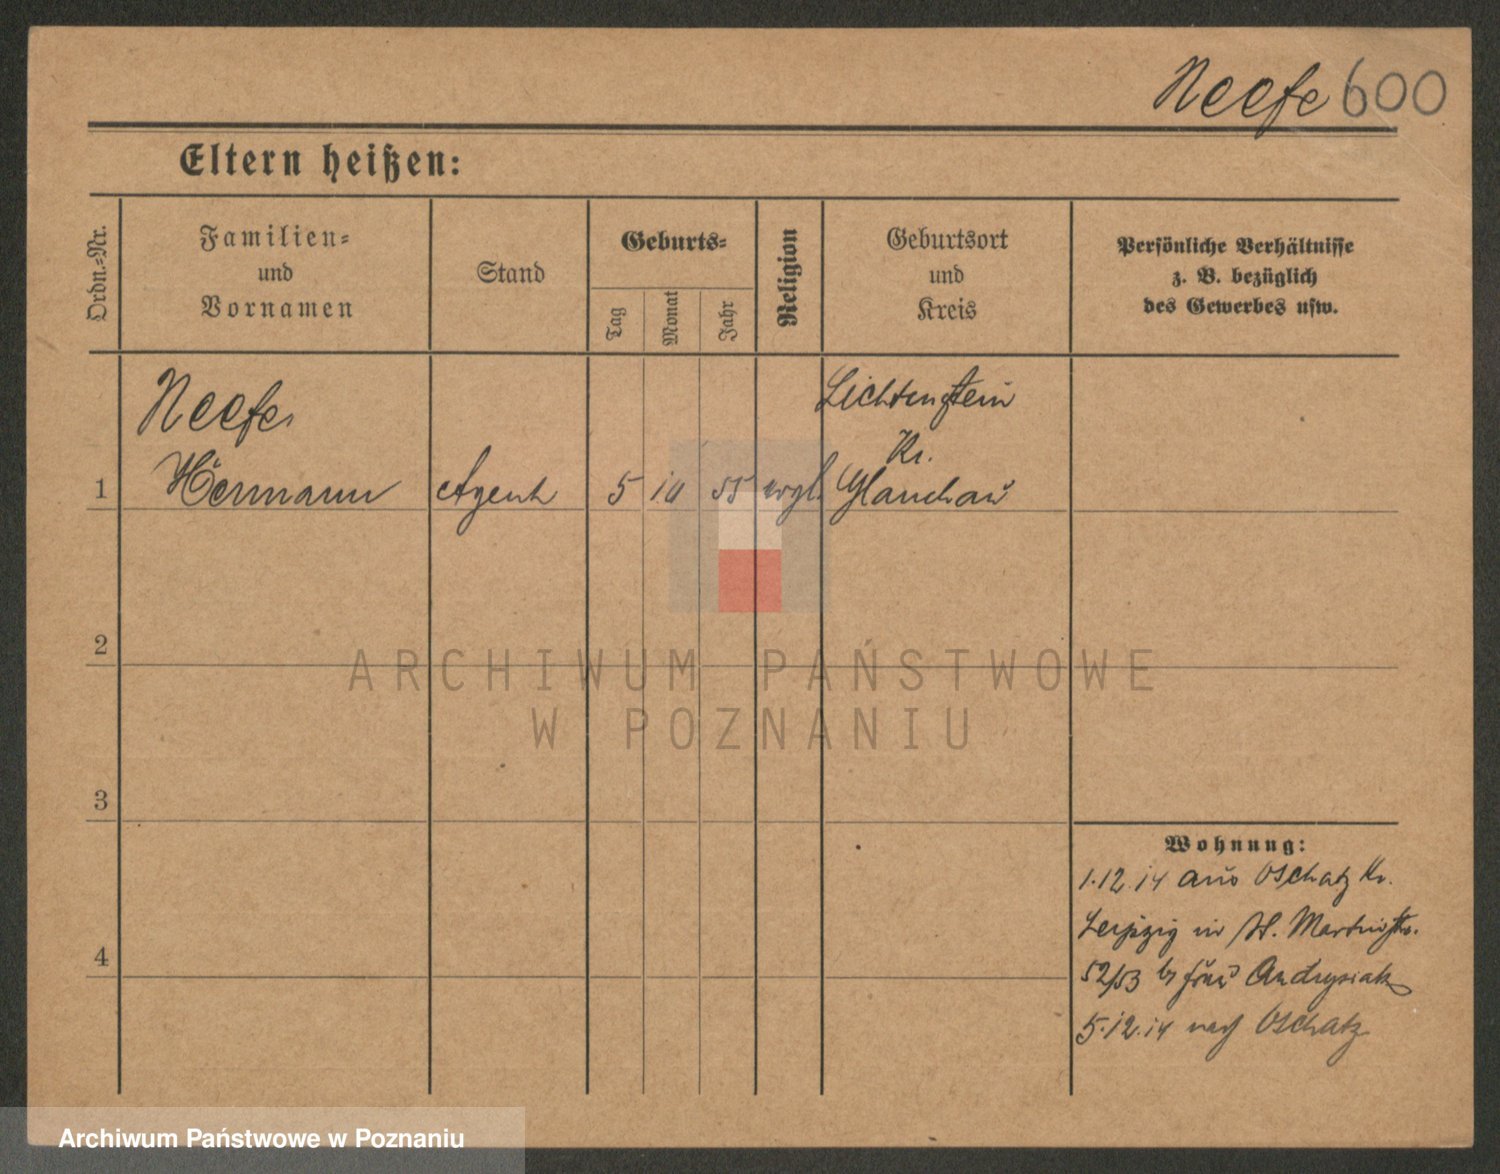 Neefe 600
Eltern heißen:
Ordn.-Nr.
Familien-
und
Vornamen
Stand
Geburts-
Tag
Monat
Jahr
Religion
Geburtsort
und
Kreis
Persönliche Verhältnisse
z. B. bezüglich
des Gewerbes usw.
Neefe
Hermann
1
Agent
5
10
55
evgl.
Lichtenstein
Kr.
Glauchau
2
3
4
ARCHIWUM PAŃSTWOWE
W POZNANIU
Wohnung:
1.12.14 aus Oschatz Kr.
Leipzig in St. Martinstr.
52/53 b. Frau Andrysiak
5.12.14 nach Oschatz
Archiwum Państwowe w Poznaniu